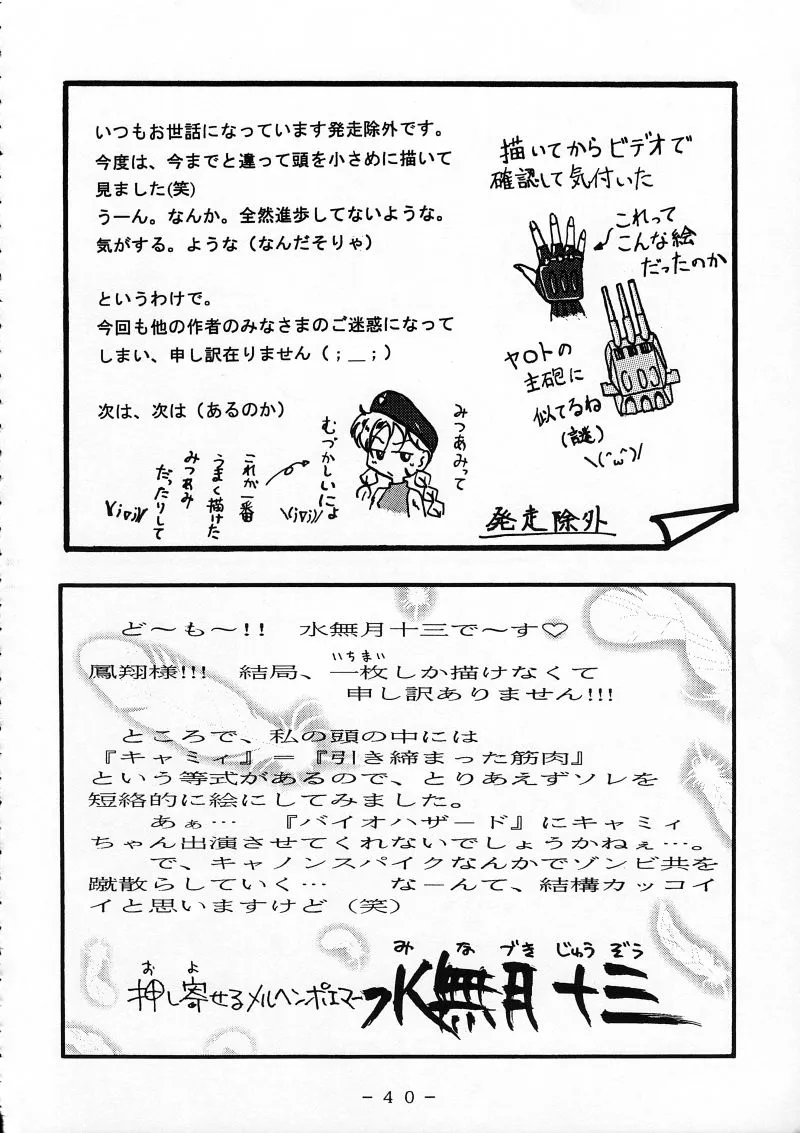 いつもお世話になっています発走除外です。
今度は、今までと違って頭を小さめに描いて
見ました(笑)
うーん。なんか。全然進歩してないような。
気がする。ような（なんだそりゃ）
というわけで。
今回も他の作者のみなさまのご迷惑になって
しまい、申し訳在りません（；＿；）
次は、次は（あるのか）
描いてからビデオで
確認して気付いた
これって
こんな絵
だったのか
ヤマトの
主砲に
似てるね
(謎)
＼(^ω^)/
みつあみって
むづかしいによ
\\(i▽i)//
これが一番
うまく描けた
みつあみ
だったりして
発走除外
ど～も～!!　水無月十三で～す♡
鳳翔様!!!　結局、一枚しか描けなくて
いちまい
申し訳ありません!!!
ところで、私の頭の中には
『キャミィ』＝『引き締まった筋肉』
という等式があるので、とりあえずソレを
短絡的に絵にしてみました。
あぁ…　『バイオハザード』にキャミィ
ちゃん出演させてくれないでしょうかねぇ…。
で、キャノンスパイクなんかでゾンビ共を
蹴散らしていく…　なーんて、結構カッコイ
イと思いますけど（笑）
およ
押し寄せるメルヘンポエマー
みなづきじゅうぞう
水無月十三
－４０－